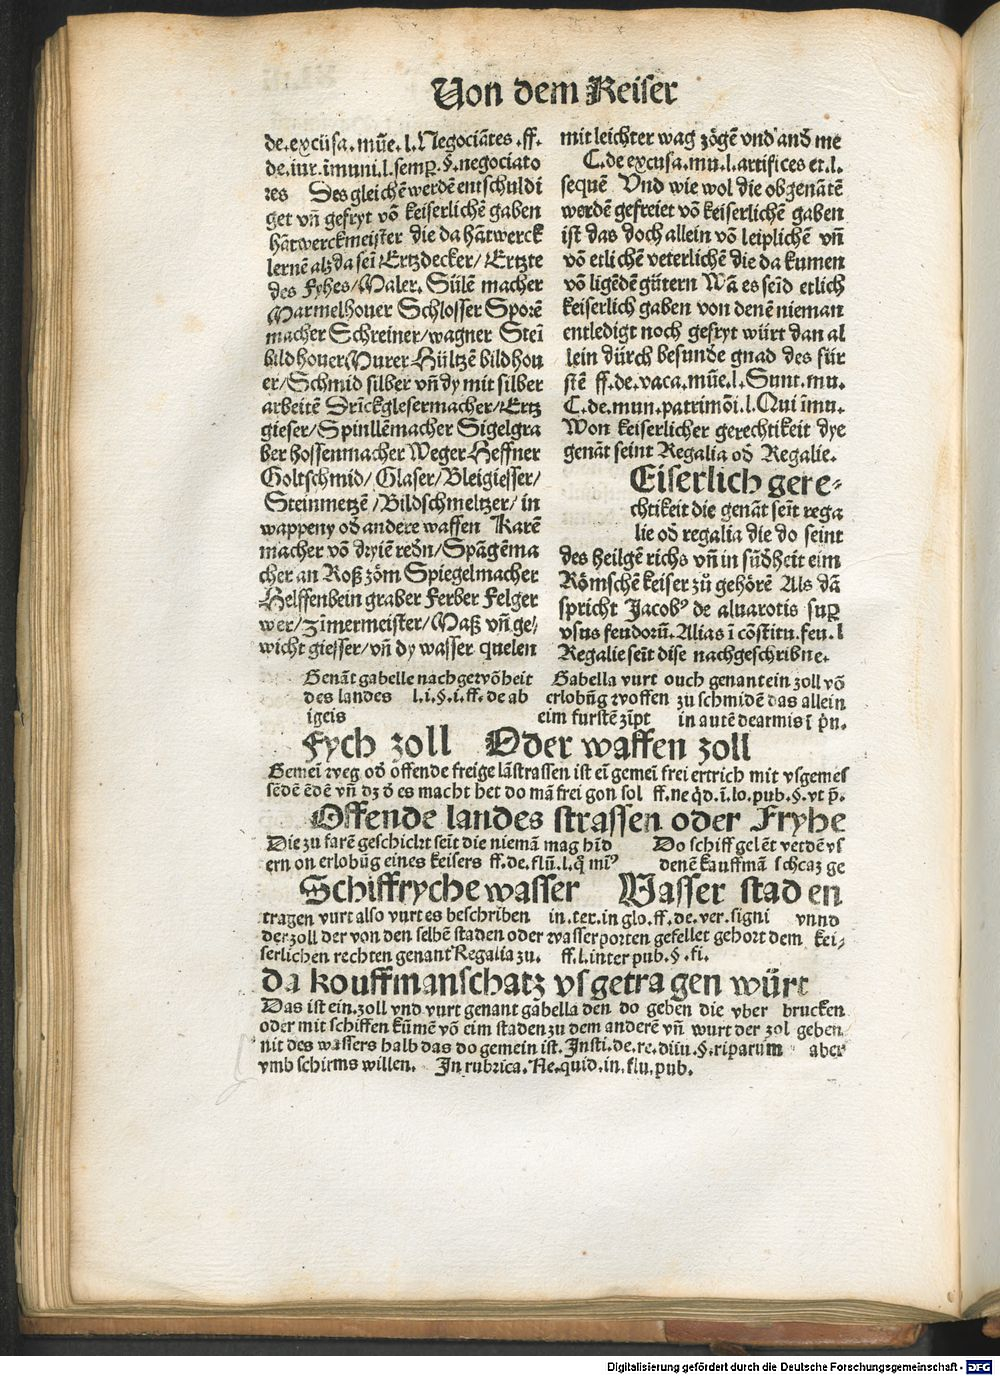 Von dem Keiser
de.excusa.mūe.l.Negociātes.ff.
de.iur.īmuni.l.semꝑ.§.negociato
res Des gleichē werdē entschuldi
get vn̄ gefryt vō keiserlichē gaben
hātwerckmeister die da hātwerck
lernē alß da seī Ertzdecker/ Ertzte
des Fyhes/ Maler. Sülē macher
Marmelhouer Schlosser Sporē
macher Schreiner/wagner Steī
bildhouer Murer Hültzē bildhou
er/Schmid silber vn̄ dy mit silber
arbeitē Drīckglesermacher/Ertz
gieser/Spinllēmacher Sigelgra
ber hossenmacher Weger Heffner
Goltschmid/ Glaser/Bleigiesser/
Steinmetzē/Bildschmeltzer/ in
wappeny od̄ andere waffen Karē
macher vō dryiē redn̄/Spāgēma
cher an Roß zöm Spiegelmacher
Helffenbein graber Ferber Felger
wer/zīmermeister/Maß vn̄ ge/
wicht giesser/vn̄ dy wasser quelen
mit leichter wag zögē vnd and̄ me
C.de excusa.mu.l.artifices et.l.
sequē Vnd wie wol die obgenātē
werdē gefreiet vō keiserlichē gaben
ist das doch allein vō leiplichē vn̄
vō etlichē veterlichē die da kumen
vō ligēdē gütern Wā es seīd etlich
keiserlich gaben von denē nieman
entledigt noch gefryt würt dan al
lein dürch besunde gnad des für
stē ff.de.vaca.mūe.l.Sunt.mu.
C.de.mun.patrimōi.l.Qui īmu.
Won keiserlicher gerechtikeit dye
genāt seint Regalia od̄ Regalie.
Eiserlich gere-
chtikeit die genāt seīt rega
lie od̄ regalia die do seint
des heilgē richs vn̄ in sūd̄heit eim
Römschē keiser zů gehörē Als dā
spricht Jacobꝰ de aluarotis suꝑ
vsus feudorū.Alias ī cōstitu.feu.l
Regalie seīt dise nachgeschribne.
Genāt gabelle nach gewōheit Gabella vurt ouch genant ein zoll vō
des landes l.i.§.i.ff.de ab erlobūg woffen zu schmidē das allein
igeis eim furstē zīpt in autē de armis ī p̄n.
Fych zoll Oder waffen zoll
Gemeī weg od̄ offende freige lāstrassen ist eī gemeī frei ertrich mit vsgemes
sēdē ēdē vn̄ dz d̄ es macht het do mā frei gon sol ff.ne q̄d.ī.lo.pub.§.vt p̄.
Offende landes strassen oder Fryhe
Die zu farē geschickt seīt die niemā mag hīd Do schiff gelēt verdē vs
ern on erlobūg eines keisers ff.de.flu̅.l.q̄ mīꝰ denē kauffmā schcaz ge
Schiffryche wasser Wasser staden
tragen vurt also vurt es beschriben in.ter.in glo.ff.de.ver.signi vnnd
der zoll der von den selbē staden oder wasserporten gefellet gehort dem kei/
serlichen rechten genant Regalia zu. ff.l.inter pub.§.fi.
da kouffmanschatz vsgetragen würt
Das ist ein.zoll vnd vurt genant gabella den do geben die vber brucken
oder mit schiffen kūmē vō eim staden zu dem anderē vn̄ wurt der zol geben
nit des wassers halb das do gemein ist.Insti.de.re.diui.§.riparum aber
vmb schirms willen. In rubrica.Ne.quid.in.flu.pub.
Digitalisierung gefördert durch die Deutsche Forschungsgemeinschaft - DFG